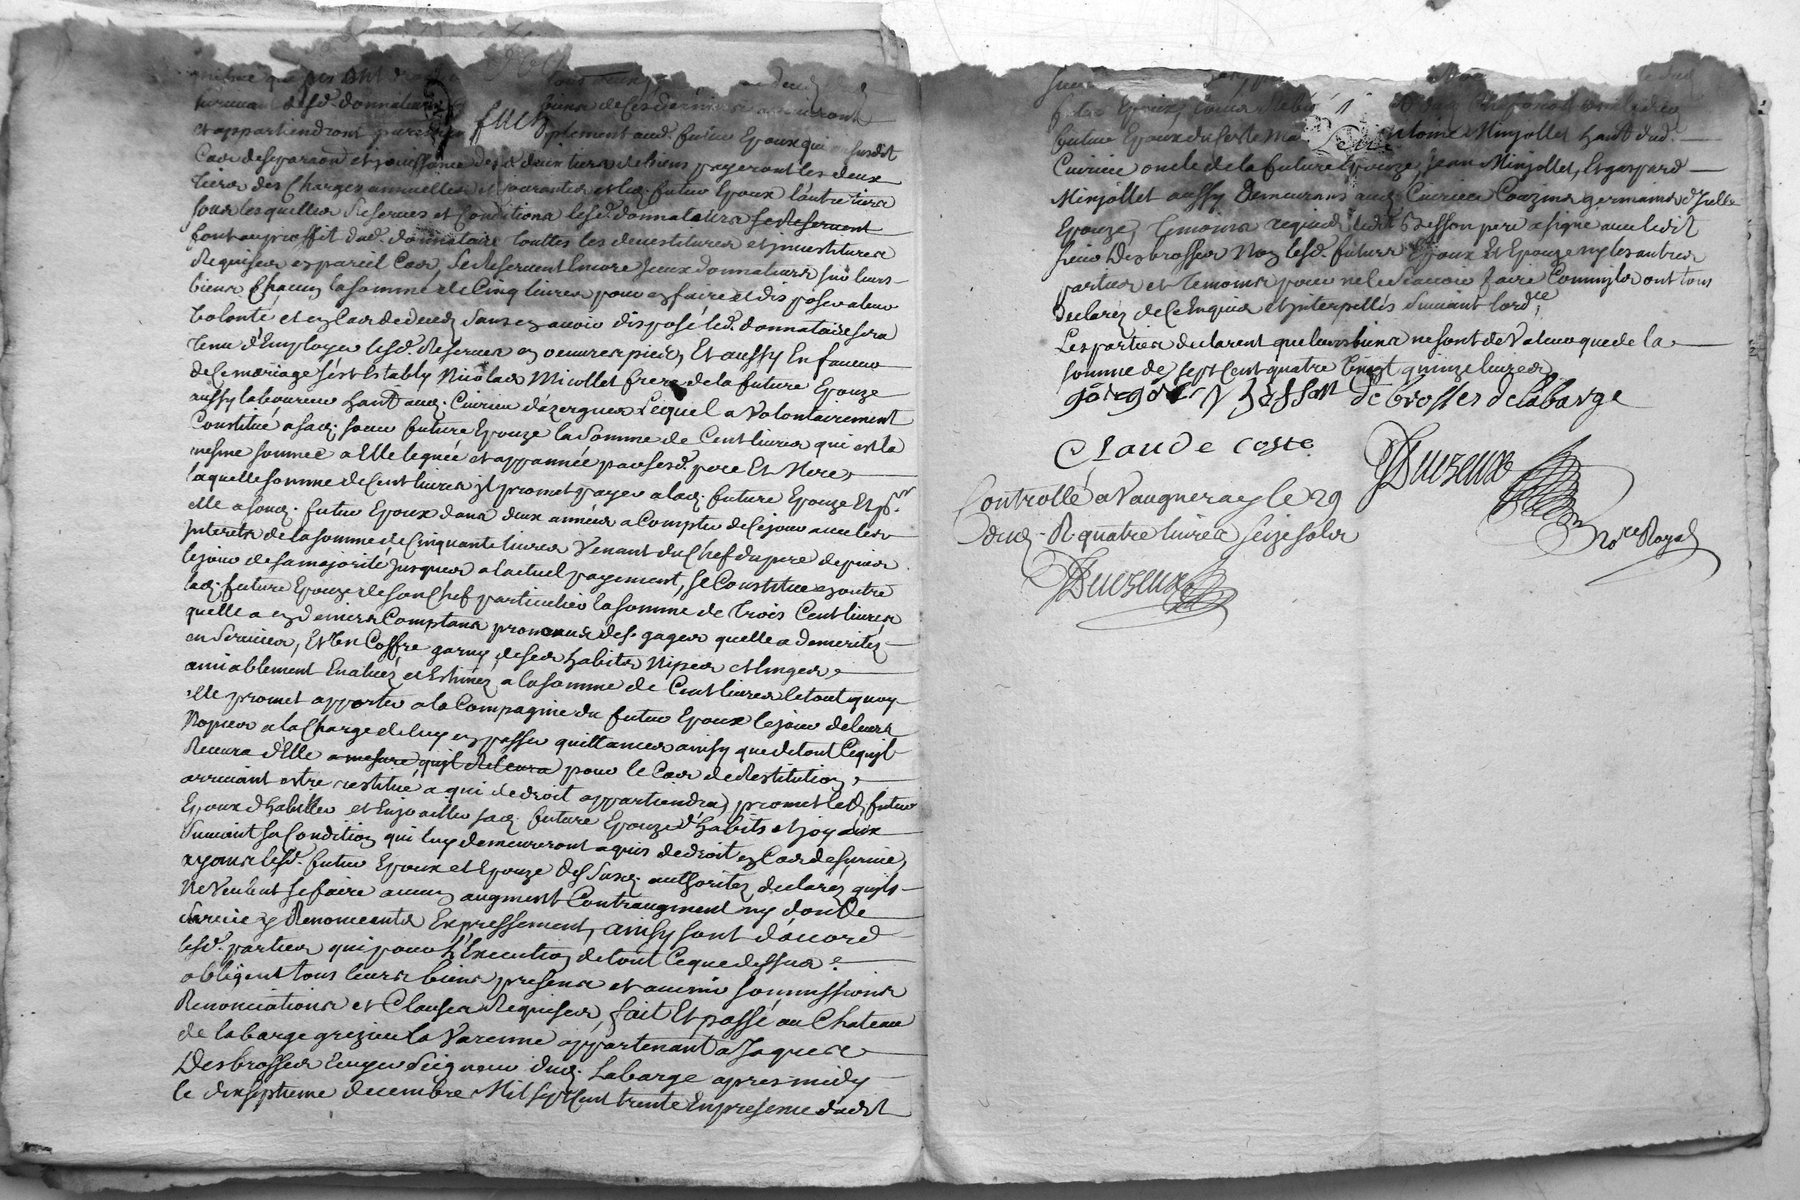 survivant desd. donnateurs biens de ces derniers
et appartiendront futur Epoux qui susdit
Cas de separaõn et jouissance des deux tiers de biens payeront les deux
tiers des Charges annuelles et courantes et led. futur Epoux l'autre tiers
sous lesquelles Reserves et Conditions lesd. donnateurs se Reservent
font au proffit dud. donnataire touttes les devestitures et jnvestitures
Requises en pareil Cas, se Reservent Encore jceux donnateurs sur leurs
biens Chacun la somme de Cinq livres pour en faire et disposer a leur
Volonté et en Cas de deceds sans en avoir disposé led. donnataire sera
tenu d'Employer lesd. Reserves en oeuvres pies, Et aussy En faveur
de Ce mariage s'est Estably Nicolas Minjollet frere de la future Epouze
aussy laboureur hant aud. Civrieu d'azergues Lequel a Volontairement
Constitué a sad. soeur future Epouze la Somme de Cent livres qui est la
mesme somme a Elle leguée et appannée par sesd. pere Et Mere,
laquelle somme de Cent livres jl promet payer a lad. future Epouze Et pr.
elle a sond. futur Epoux dans deux années a Compter de Ce jour avec les
Jnterets de la somme de Cinquante livres Venant du Chef du pere depuis
le jour de sa majorité jusques a l'actuel payement, se Constitue en outre
lad. future Epouze de son Chef particulier la somme de trois Cent livres
quelle a en deniers Comptans provenus des gages quelle a Merités
en Services, Et Un Coffre garny de ses habits Nipes et linges
amiablement Evalués et Estimés a la somme de Cent livres le tout quoy
elle promet apporter a la Compagnie du futur Epoux le jour de leurs
Nopces a la Charge de luy en passer quittance ainsy que de tout Cequil
Recevra d'Elle a mesure quil Recevra pour le Cas de Restitution
arrivant estre restitué a qui de droit appartiendra, promet led. futur
Epoux d'habiller et Enjoailler sad. future Epouze d'habits et joyaux
Suivant sa Condition qui luy demeureront aquis de droit en Cas de survie,
ayans lesd. futur Epoux et Epouze des Susd. authorités declaré quils
Ne Veulent se faire aucun augment Contraugment ny don de
Survie y Renonceants Expressement, ainsy sont d'acord
lesd. parties qui pour l'Execution de tout Ceque dessus
obligent tous leurs biens presens et avenir soumissions
Renonciations et Clauses Requises, fait Et passé au Chateau
de labarge grezieu la Varenne appartenant a Jaques
Desbrosses Ecuyer Seigneur dud. Labarge apres midy
le dix septieme decembre Mil sept Cent trente En presence dudit
futur Epoux du Costé Ma Antoine Minjollet hant aud.
Civrieu oncle de la future Epouze, Jean Minjollet, Et gaspard
Minjollet aussy Demeurans aud. Civrieu Couzins germains d'jcelle
Epouze, Temoins requis led. Bisson pere a signé avec ledit
sieur Desbrosses Non lesd. futurs Epoux Et Epouze ny les autres
parties et temoins pour ne le Scavoir faire Comme ils ont tous
Declaré de Ce Enquis et jnterpellés Suivant l'ordce
Les parties declarent que leurs biens ne sont de Valeur que de la
somme de sept Cent quatre Vingt quinze livres
Desbrosses de labarge
CLaude coste
Duizeux
Nore Royal
Controllé a Vaugneray le 29
dud. R quatre livres seize sols
Duizeux